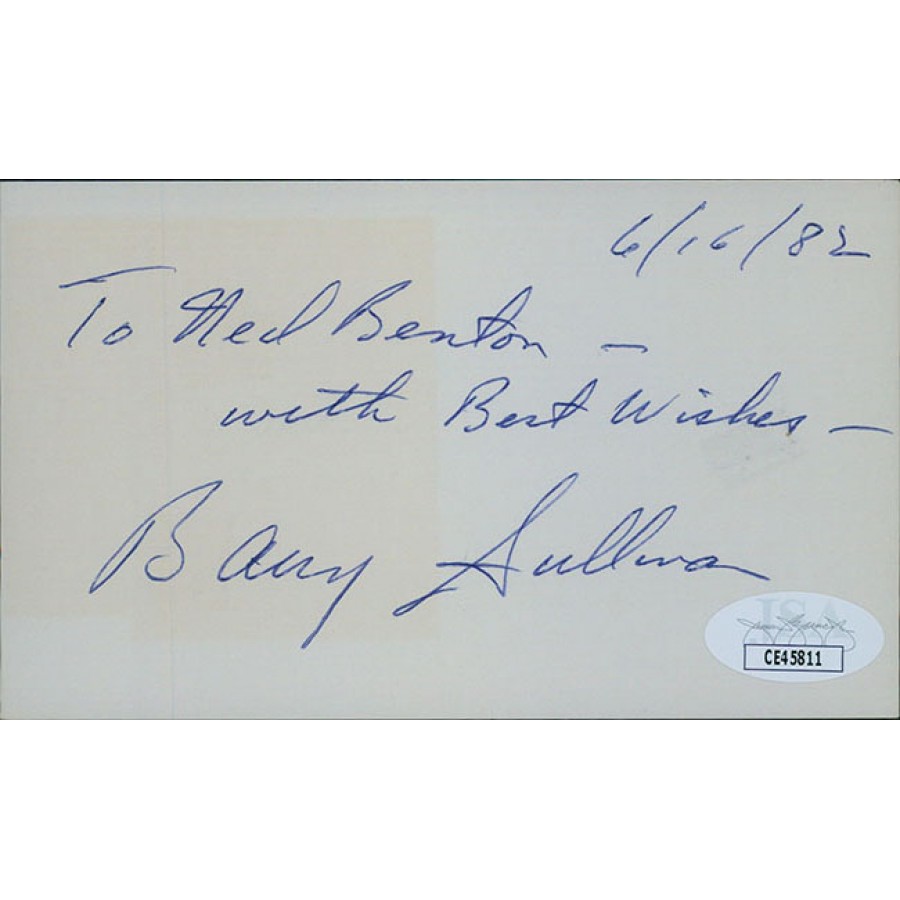 6/16/82
To Ned Benton –
with Best Wishes –
Barry Sullivan
JSA
CE45811